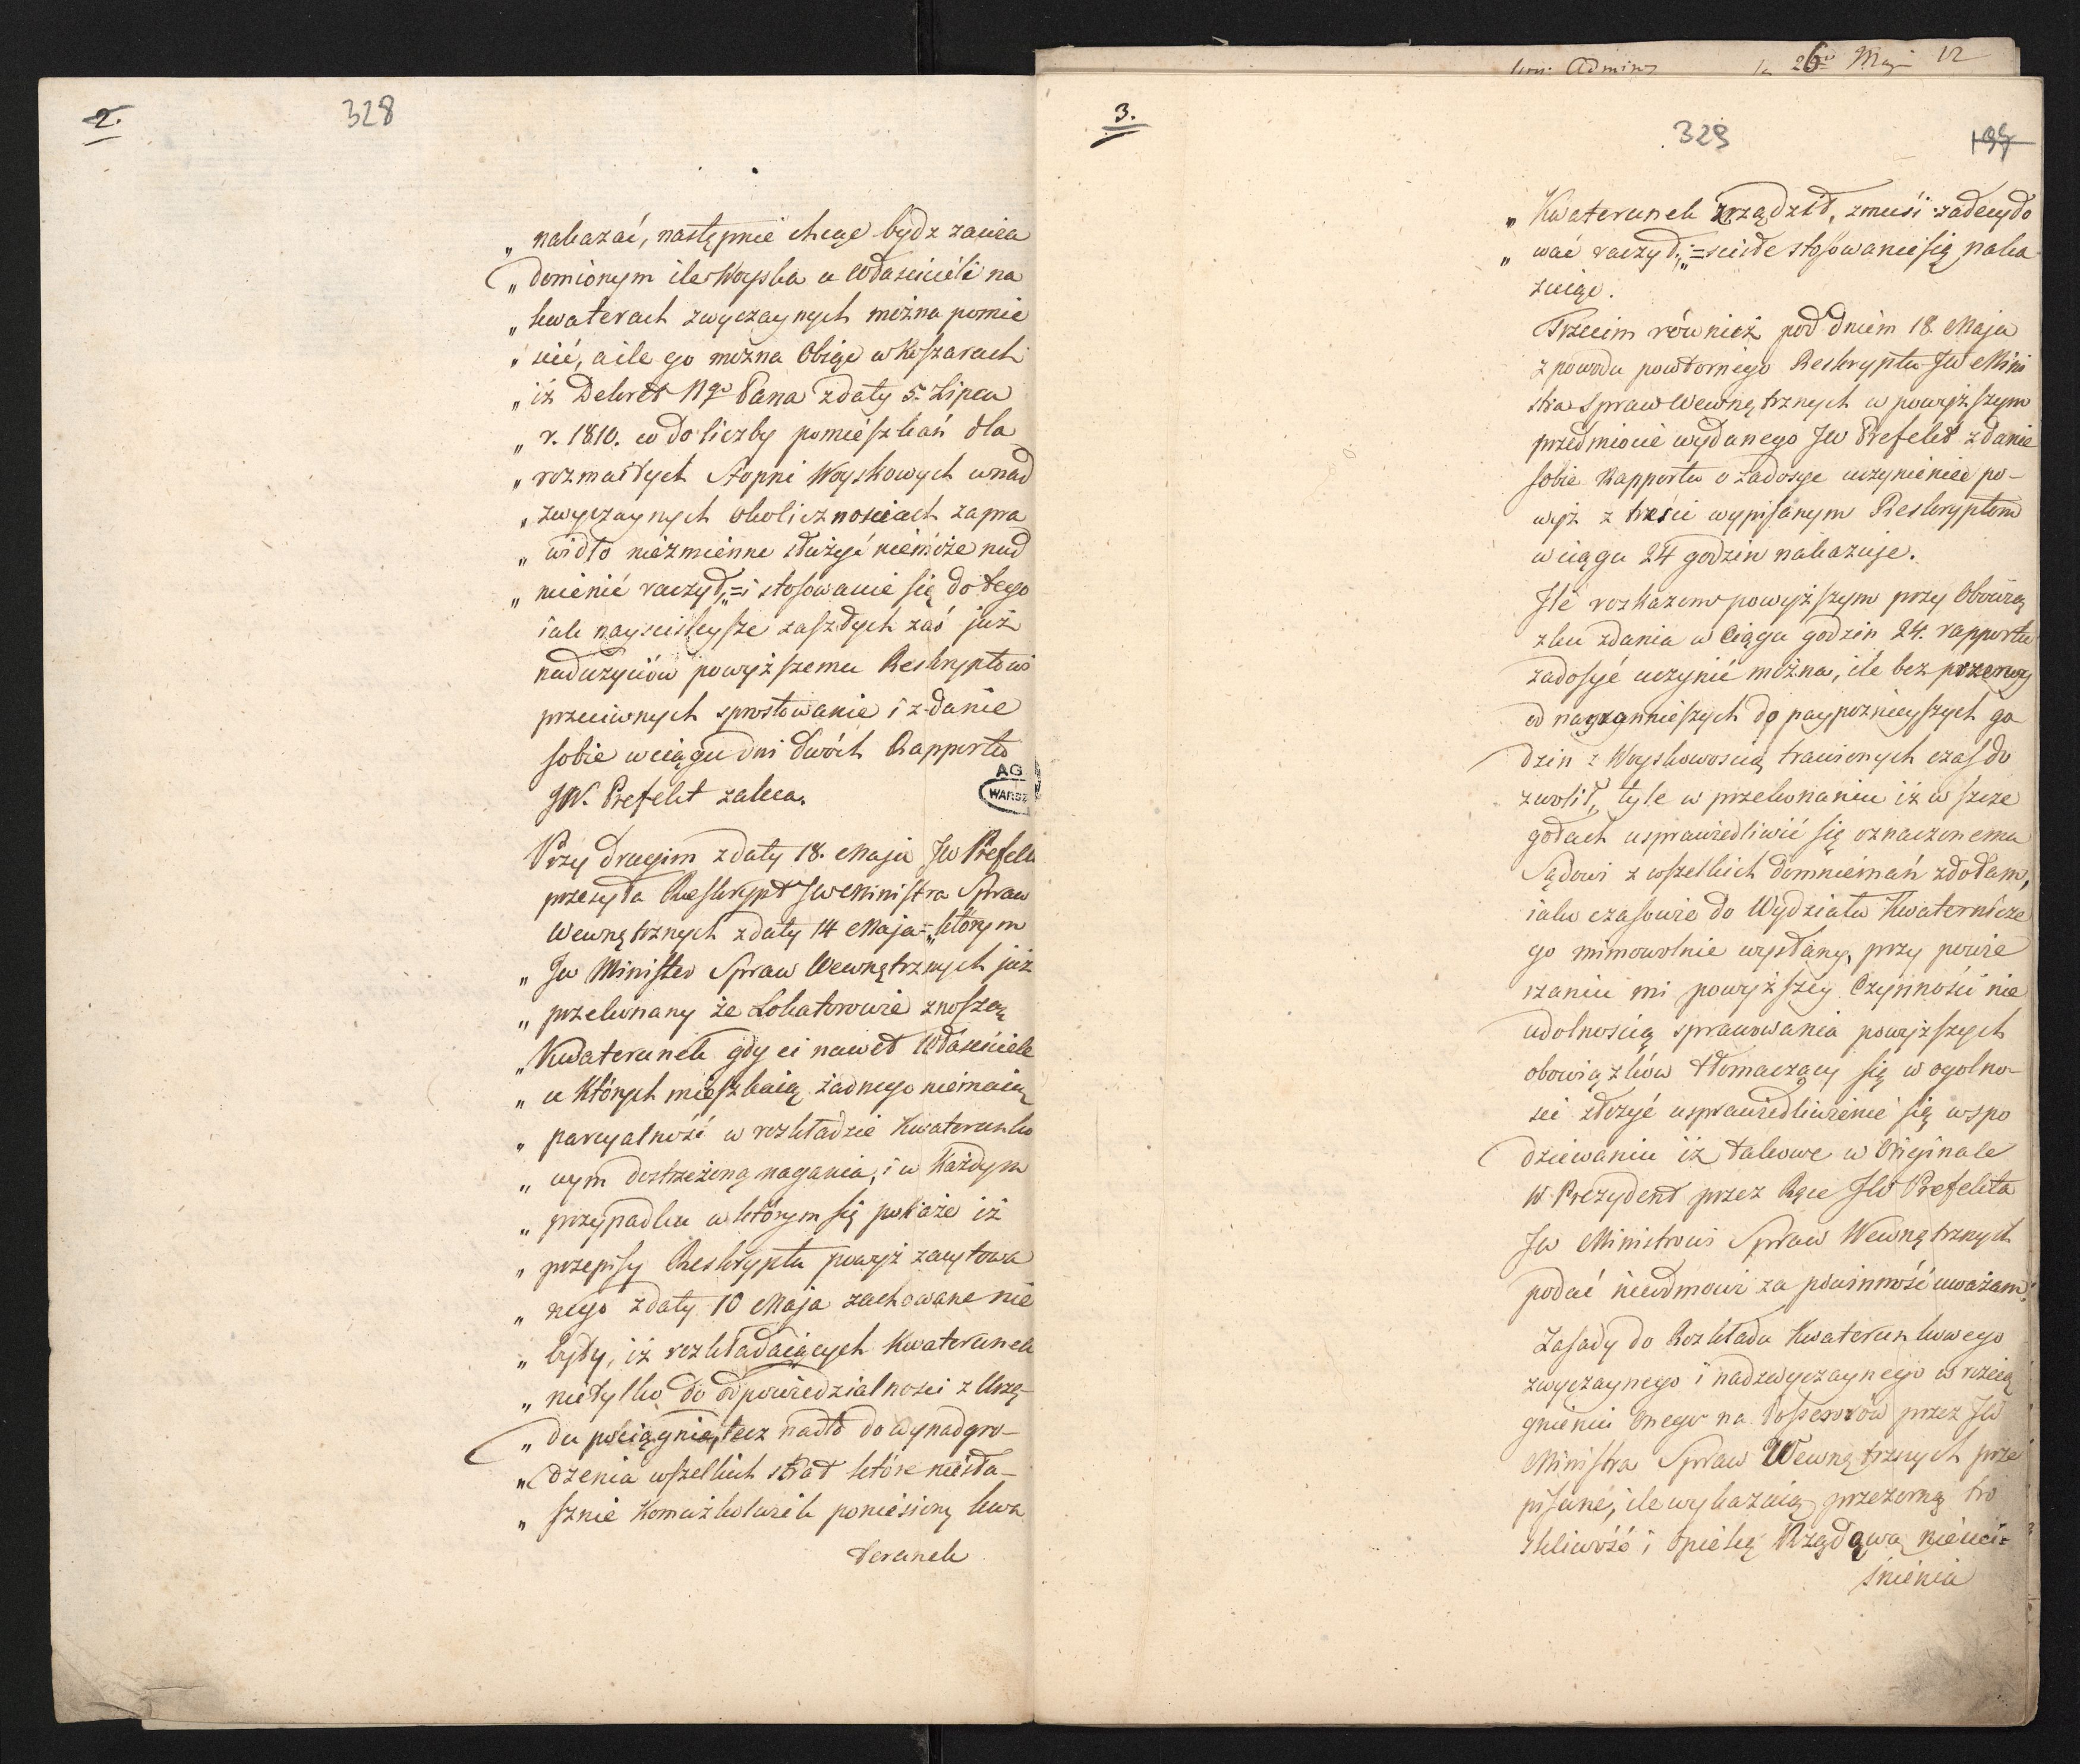 2.
328
„ nakazać, następnie chcąc bydz zawia
„ domionym ile Woyska u Właścicieli na
„ kwaterach zwyczaynych można pomie
„ scić, a ile go można Obiąć w Koszarach
„ iż Dekret Nго Pana z daty 5. Lipca
„ r. 1810. co do liczby pomieszkań dla
„ rozmaitych Stopni Woyskowych w nad
„ zwyczaynych okolicznościach za pra
„ widło niezmienne służyć niemoże nad
„ mienić raczył,„= i stosowanie się do tego
iak nayscisleysze zaszłych zaś już
nadużyciów powyższemu Reskryptowi
przeciwnych sprostowanie i zdanie
sobie w ciągu dni dwóch Rapportu
JW. Prefekt zaleca.
Przy drugim z daty 18. Maja JW Prefekt
przesyła Reskrypt JW Ministra Spraw
Wewnętrznych z daty 14 Maja =„ którym
„ JW Minister Spraw Wewnętrznych już
„ przekonany że Lokatorowie znoszą
„ Kwaterunek gdy ci nawet Właściciele
„ u Których mieszkaią żadnego niemaią
„ parcyalność w rozkładzie Kwaterunko
„ wym dostrzeżoną nagania, i w Każdym
„ przypadku w którym się pokaże iż
„ przepisy Reskryptu powyż zacytowa
„ nego z daty 10 Maja zachowane nie
„ były, iż rozkładaiących Kwaterunek
„ nietylko do odpowiedzialnosci z Urzę-
„ du pociągnie, lecz nadto do Wynadgro-
„ dzenia wszelkich strat które niesłu-
„ sznie Komużkolwiek poniesiony kwa
terunek
AG
WARSZ
Admin
26 Maj 12
3.
329
197
„ Kwaterunek zrządził, zmusi zadecydo
„ wać raczył.„= scisłe stosowanie się naka
zuiąc.
Trzecim również pod dniem 18. Maja
z powodu powtornego Reskryptu JW Mini
stra Spraw Wewnętrznych w powyższym
przedmiocie wydanego JW Prefekt zdanie
sobie Rapportu o zadosyć uczynieniu po-
wyż z treści wypisanym Reskryptem
w ciągu 24 godzin nakazuje.
Ile rozkazom powyższym przy Obowią
zku zdania w Ciągu godzin 24. rapportu
zadosyć uczynić można, ile bez przerwy
od nayranniejszych do naypoznieyszych go
dzin z Woyskowością trawionych czas do
zwolił, tyle w przekonaniu iż w szcze
gołach usprawiedliwić się oznaczonemu
Sądowi z wszelkich domniemań zdołam,
iako czasowie do Wydziału Kwaternicze
go mimowolnie wysłany, przy powie
rzaniu mi powyższey Czynności nie
udolnością sprawowania powyższych
obowiązków tłomaczący się w ogolno-
sci złożyć usprawiedliwienie się w spo
dziewaniu iż takowe w Originale
W. Prezydent przez Ręce JW Prefekta
JW Ministrowi Spraw Wewnętrznych
podać nieodmowi za powinność uważam.
Zasady do Rozkładu Kwaterunkowego
zwyczaynego i nadzwyczaynego w rozcią
gnieniu onego na Possesorów przez JW
Ministra Spraw Wewnętrznych prze
pisane, ile wykazuią przezorną tro
skliwość i Opiekę Rządową nieuci=
śnienia